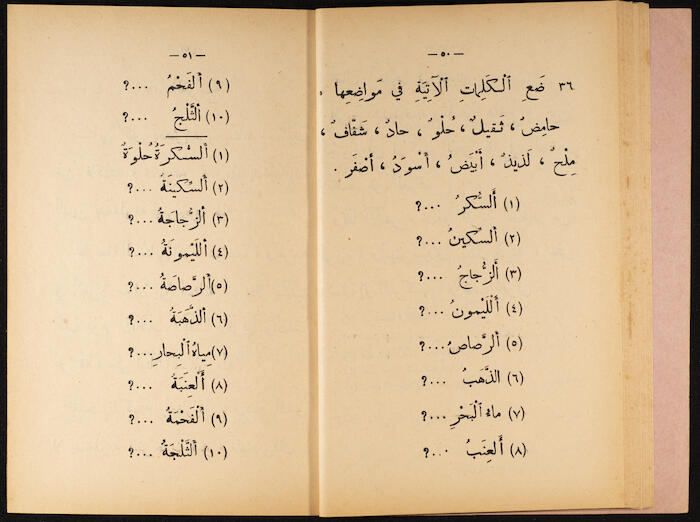 — ٥٠ —
٣٦ ضَعِ ٱلْكَلِمَاتِ ٱلْآتِيَةَ فِي مَوَاضِعِهَا .
حَامِضٌ ، ثَقِيلٌ ، حُلْوٌ ، حَادٌ ، شَفَّافٌ ،
مِلْحٌ ، لَذِيذٌ ، أَبْيَضُ ، أَسْوَدُ ، أَصْفَر .
(١) أَلسُّكَرُ ...؟
(٢) أَلسِّكِّينُ ...؟
(٣) أَلزُّجَاجُ ...؟
(٤) أَللَّيْمُونُ ...؟
(٥) أَلرَّصَاصُ...؟
(٦) الذَّهَبُ ...؟
(٧) مَاءُ ٱلْبَحْرِ ...؟
(٨) أَلْعِنَبُ ...؟
— ٥١ —
(٩) أَلْفَحْمُ ...؟
(١٠) أَلثَّلْجُ ...؟
(١) أَلسُّكَرَةُ حُلْوَةٌ
(٢) أَلسِّكِينَةُ ...؟
(٣) أَلزُّجَاجَةُ ...؟
(٤) أَللَّيْمُونَةُ ...؟
(٥) أَلرَّصَاصَةُ ...؟
(٦) أَلذَّهَبَةُ ...؟
(٧) مِيَاهُ ٱلْبِحَارِ...؟
(٨) أَلْعِنَبَةُ ...؟
(٩) أَلْفَحْمَةُ ...؟
(١٠) أَلثَّلْجَةُ ...؟